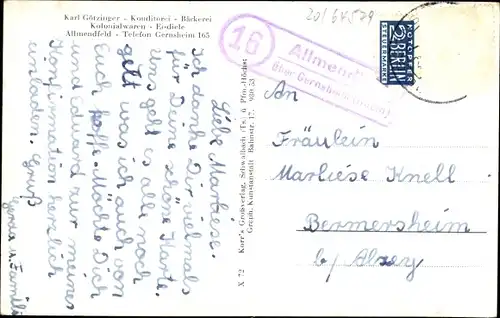 Karl Götzinger - Konditorei - Bäckerei
Kolonialwaren - Eisdiele
Allmendfeld - Telefon Gernsheim 165
Liebe Marliese.
Ich danke Dir vielmals
für Deine schöne Karte.
Uns geht es alle noch
gut was ich auch von
Euch hoffe. Möchte Dich
und Eduard zur meiner
Konfirmation herzlich
einladen. Gruß
Gerda u. Familie
X 72
Korr's Großverlag, Schwalbach (Ts.) ü. Pfm.-Höchst
Graph. Kunstanstalt Bahnstr. 17, 980 53
16
Allmendfeld
über Gernsheim
20/64579
NOTOPFER
2 BERLIN
STEUERMARKE
An
Fräulein
Marliese Knell
Bermersheim
b/ Alzey